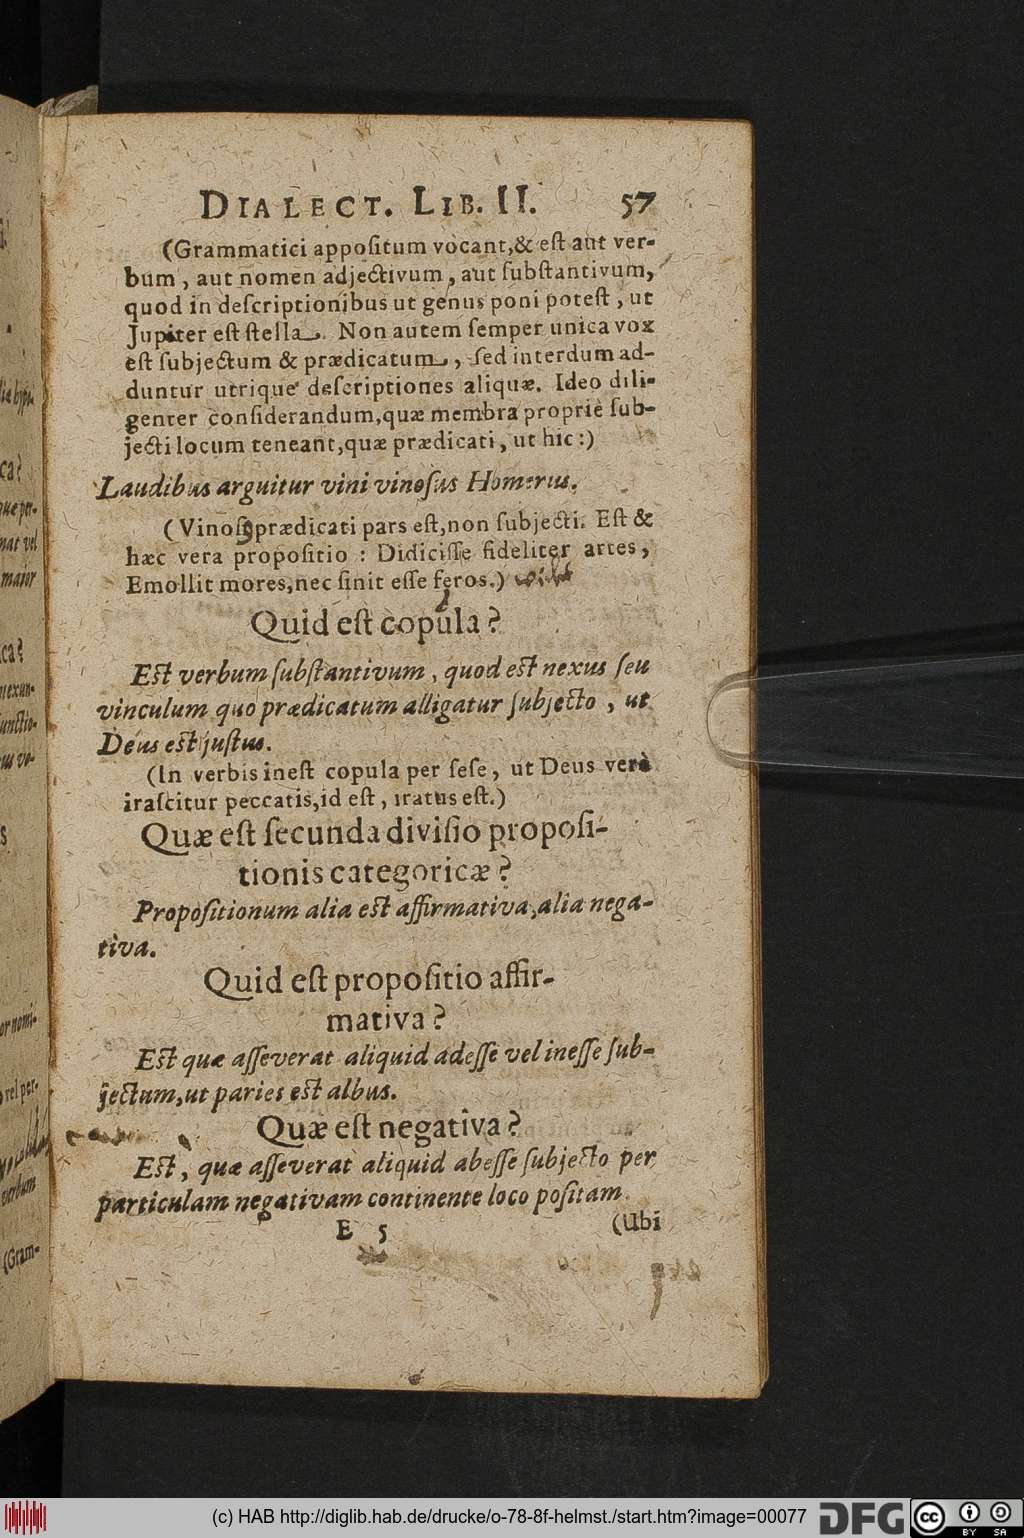 DIALECT. LIB. II. 57
(Grammatici appoſitum vocant,& eſt aut ver-
bum, aut nomen adjectivum, aut ſubſtantivum,
quod in deſcriptionibus ut genus poni poteſt, ut
Jupiter eſt ſtella. Non autem ſemper unica vox
eſt ſubjectum & prædicatum, ſed interdum ad-
duntur utrique deſcriptiones aliquæ. Ideo dili-
genter conſiderandum,quæ membra propriè ſub-
jecti locum teneant,quæ prædicati, ut hic:)
Laudibus arguitur vini vinoſus Homerus.
(Vinoſꝯ prædicati pars eſt,non ſubjecti. Eſt &
hæc vera propoſitio: Didiciſſe fideliter artes,
Emollit mores,nec ſinit eſſe feros.)
Quid eſt copula?
Eſt verbum ſubſtantivum, quod eſt nexus ſeu
vinculum quo prædicatum alligatur ſubjecto, ut
Deus eſt juſtus.
(In verbis ineſt copula per ſeſe, ut Deus verè
iraſcitur peccatis,id eſt, iratus eſt.)
Quæ eſt ſecunda diviſio propoſi-
tionis categoricæ?
Propoſitionum alia eſt affirmativa,alia nega-
tiva.
Quid eſt propoſitio affir-
mativa?
Eſt quæ aſſeverat aliquid adeſſe vel ineſſe ſub-
jectum,ut paries eſt albus.
Quæ eſt negativa?
Eſt, quæ aſſeverat aliquid abeſſe ſubjecto per
particulam negativam continente loco poſitam.
E 5 (Ubi
(c) HAB http://diglib.hab.de/drucke/o-78-8f-helmst./start.htm?image=00077 DFG cc BY SA